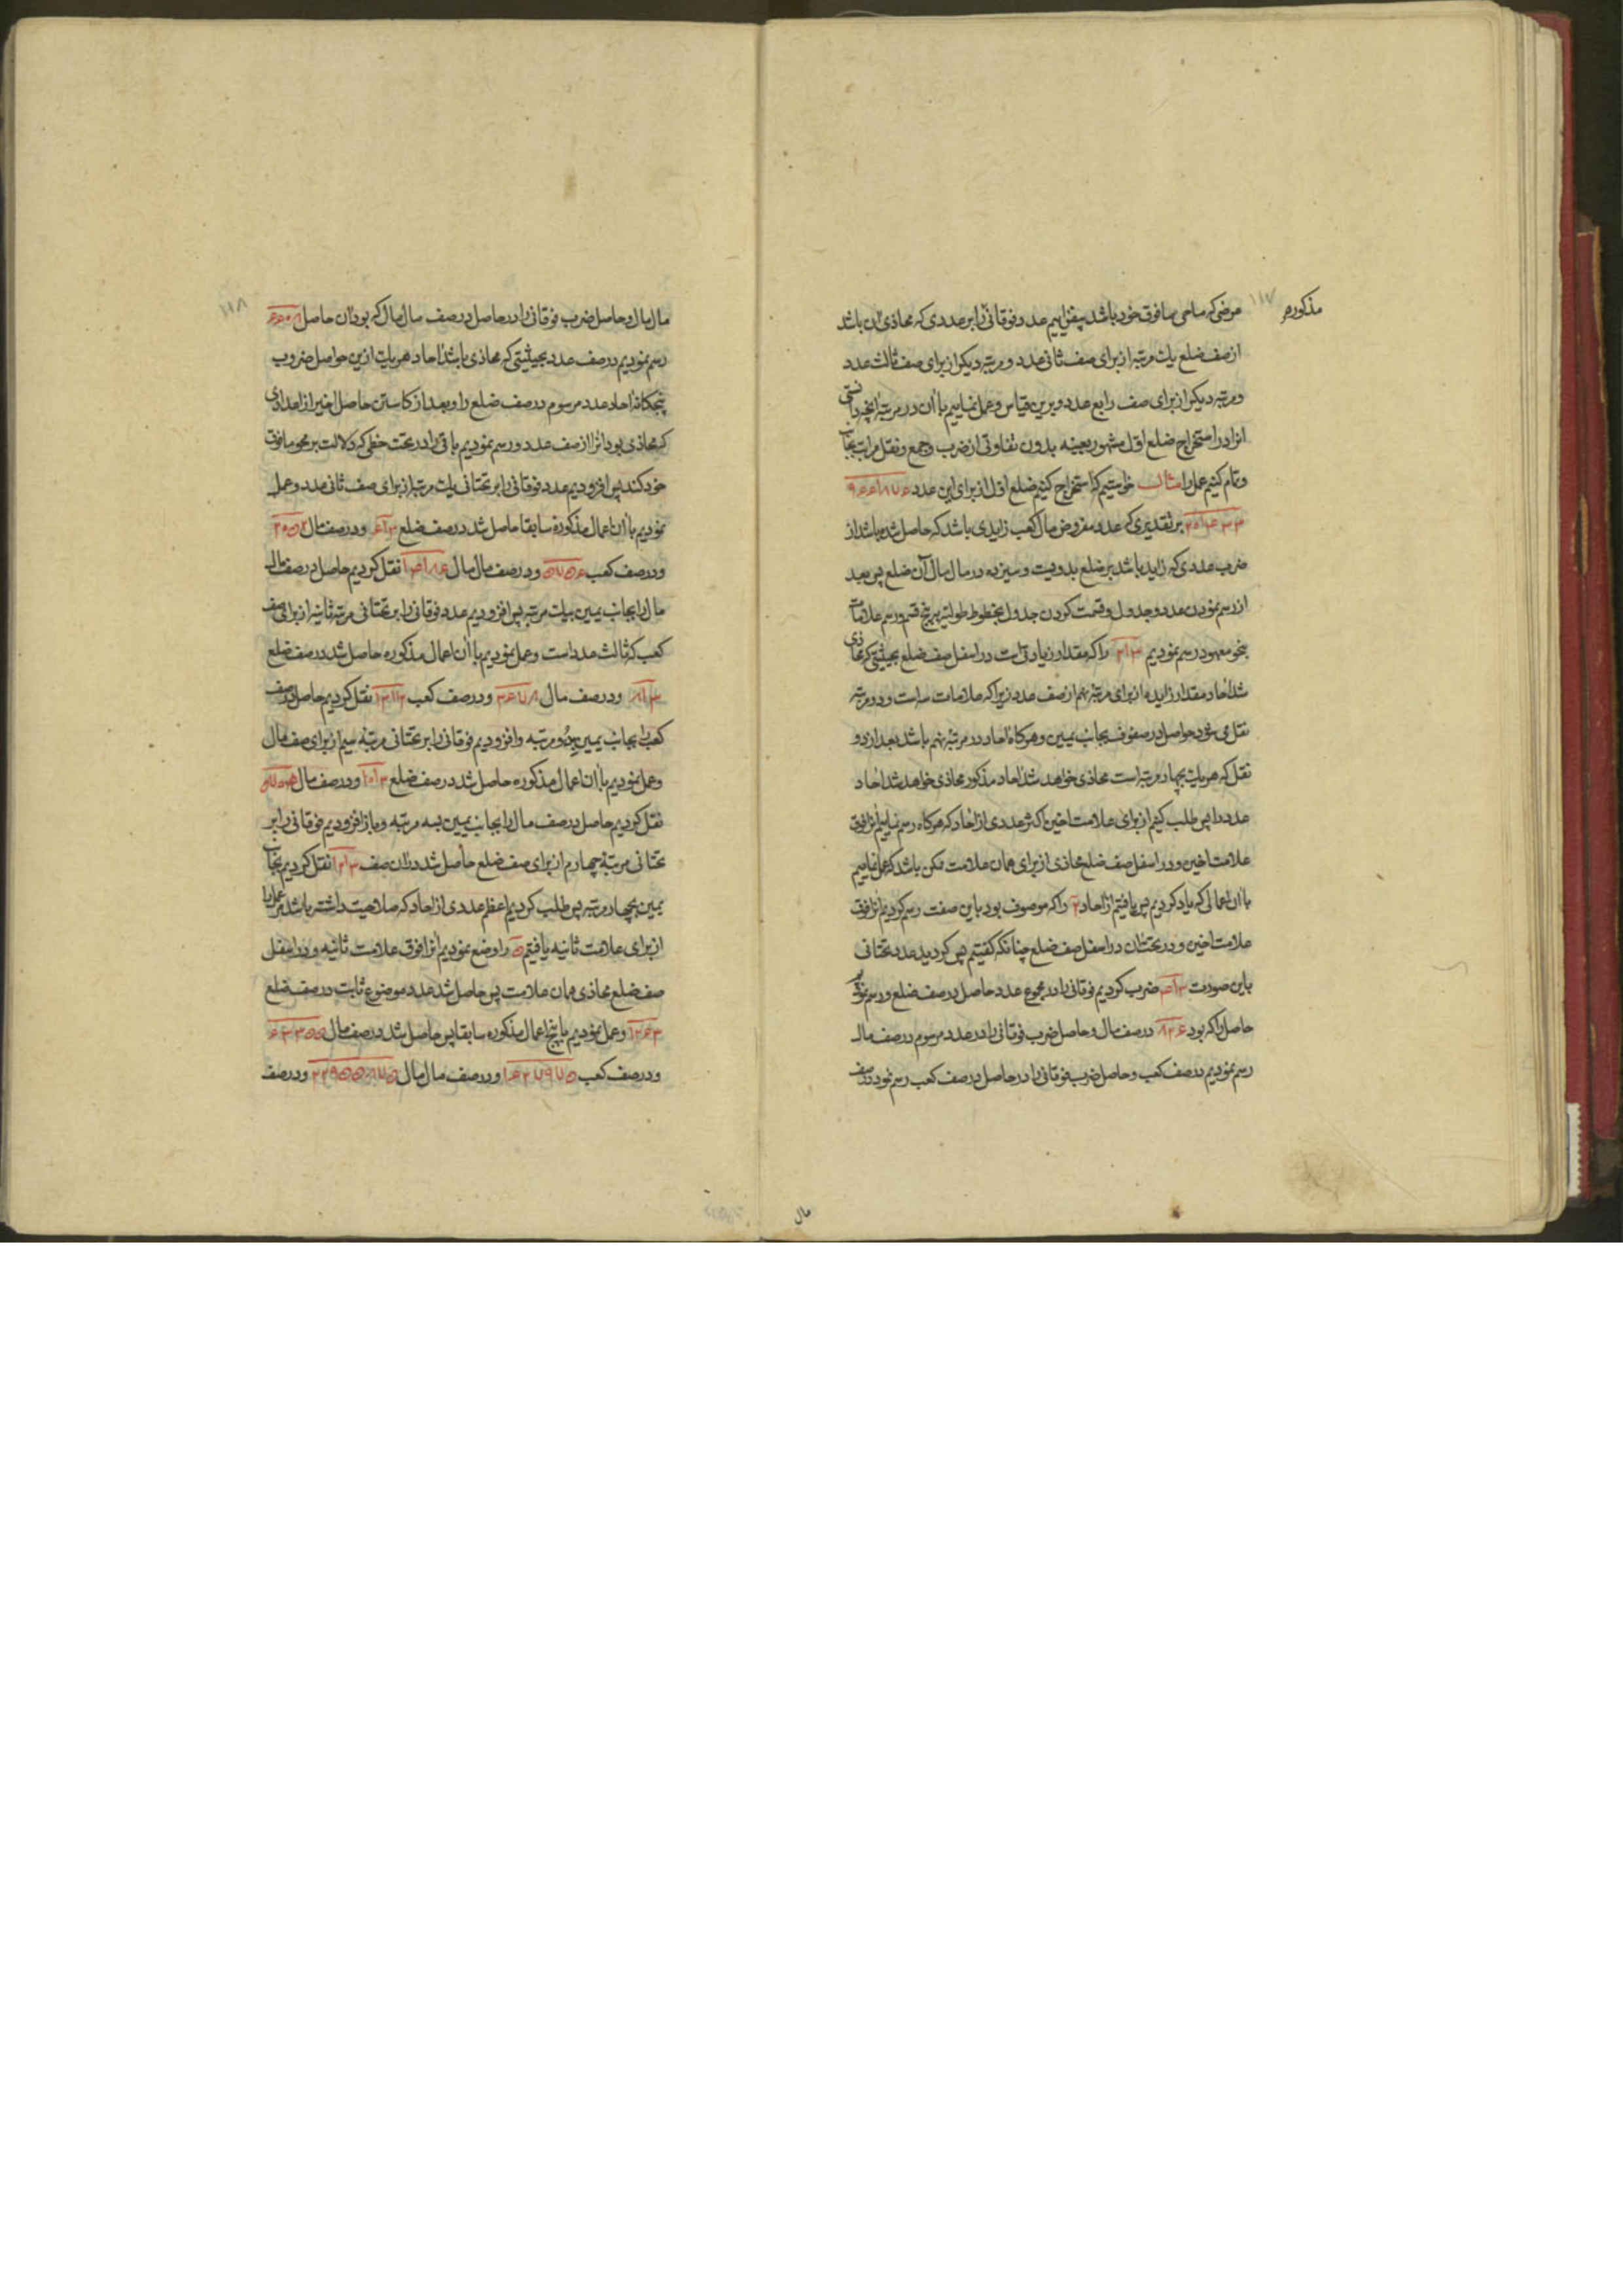 مذكوره ۱۱۷
عرضی که ماحی مافوق خود باشد بیفزاییم عدد فوقانی را بر عددی که محاذی آن باشد
از صف ضلع یک مرتبه از برای صف ثانی عدد و مرتبه دیگر از برای صف ثالث عدد
و مرتبه دیگر از برای صف رابع عدد و برین قیاس و عمل نماییم با آن در مرتبه آنچه دانستی
انرا در استخراج ضلع اول مشهور بعینه بدون تفاوتی از ضرب و جمع و نقل مراتب بجانب
و تمام کنیم عمل را مثالب خواستیم که استخراج کنیم ضلع اول از برای این عدد
بر تقدیری که عدد مفروض مال کعب زایدی باشد که حاصل شده باشد از
ضرب عددی که زاید باشد بر ضلع بدویست و سیزده در مال مال آن ضلع پس بعد
از رسم نمودن عدد و جدول و قسمت کردن جدول بخطوط طولیه بر پنج قسم و رسم علامات
بنحو معهود رسم نمودیم ۲۱۳ را که مقدار زیادتی است در اسفل صف ضلع بحیثیتی که محاذی
شد احاد مقدار زاید از برای مرتبه نهم از صف عدد زیرا که علامات سه است و دو مرتبه
نقل می شود حواصل در صفوف بجانب یمین و هرکاه احاد در مرتبه نهم باشد بعد از دو
نقل که هر یک بچهار مرتبه است محاذی خواهد شد احاد مذکور محاذی خواهد شد احاد
عدد را پس طلب کنیم از برای علامت اخیر اکثر عددی از احاد که هرکاه رسم نماییم انرا فوق
علامت اخیر و در اسفل صف ضلع محاذی از برای همان علامت ممکن باشد که عمل نماییم
با آن اعمالی که یاد کردیم پس یافتیم از احاد ۲ را که موصوف بود باین صفت رسم کردیم انرا فوق
علامت اخیر و در تحت آن در اسفل صف ضلع چنانکه گفتیم پس کردید عدد تحتانی
باین صورت ۴۱۳ ضرب کردیم فوقانی را در مجموع عدد حاصل در صف ضلع و رسم نمودیم
حاصل را که بود ۸۲۶ در صف مال و حاصل ضرب فوقانی را در عدد مرسوم در صف مال
رسم نمودیم در صف کعب و حاصل ضرب فوقانی را در حاصل در صف کعب رسم نمود در صف
مال
۱۱۸
مال مال و حاصل ضرب فوقانی را در حاصل در صف مال مال که بود آن حاصل ۶۶۰۸
رسم نمودیم در صف عدد بحیثیتی که محاذی باشد احاد هر یک ازین حواصل ضروب
پنجکانه احاد عدد مرسوم در صف ضلع را و بعد از کاستن حاصل اخیر از اعدادی
که محاذی بود انرا از صف عدد و رسم نمودیم باقی را در تحت خطی که دلالت بر محو مافوق
خود کند پس افزودیم عدد فوقانی را بر تحتانی یک مرتبه از برای صف ثانی عدد و عمل
نمودیم با آن اعمال مذکوره سابقا حاصل شد در صف ضلع ۶۱۳ و در صف مال ۲۰۵۲
و در صف کعب ۵۷۵۶ و در صف مال مال ۱۴۸۱۶ نقل کردیم حاصل در صف مال
مال را بجانب یمین بیک مرتبه پس افزودیم عدد فوقانی را بر تحتانی مرتبه ثانیه از برای صف
کعب که ثالث عدد است و عمل نمودیم با آن اعمال مذکوره حاصل شد در صف ضلع
۸۱۳ و در صف مال ۳۶۷۸ و در صف کعب ۱۳۱۱۲ نقل کردیم حاصل در صف
کعب را بجانب یمین بدو مرتبه و افزودیم فوقانی را بر تحتانی مرتبه سیم از برای صف مال
و عمل نمودیم با آن اعمال مذکوره حاصل شد در صف ضلع ۱۰۱۳ و در صف مال ۵۷۰۴
نقل کردیم حاصل در صف مال را بجانب یمین بسه مرتبه و باز افزودیم فوقانی را بر
تحتانی مرتبه چهارم از برای صف ضلع حاصل شد در آن صف ۱۲۱۳ نقل کردیم بجانب
یمین بچهار مرتبه پس طلب کردیم اعظم عددی از احاد که صلاحیت داشته باشد مر عمل را
از برای علامت ثانیه یافتیم ۵ را وضع نمودیم انرا فوق علامت ثانیه و در اسفل
صف ضلع محاذی همان علامت پس حاصل شد عدد موضوع ثابت در صف ضلع
۱۲۶۳ و عمل نمودیم با پنج اعمال مذکوره سابقا پس حاصل شد در صف مال
و در صف کعب و در صف مال مال و در صف